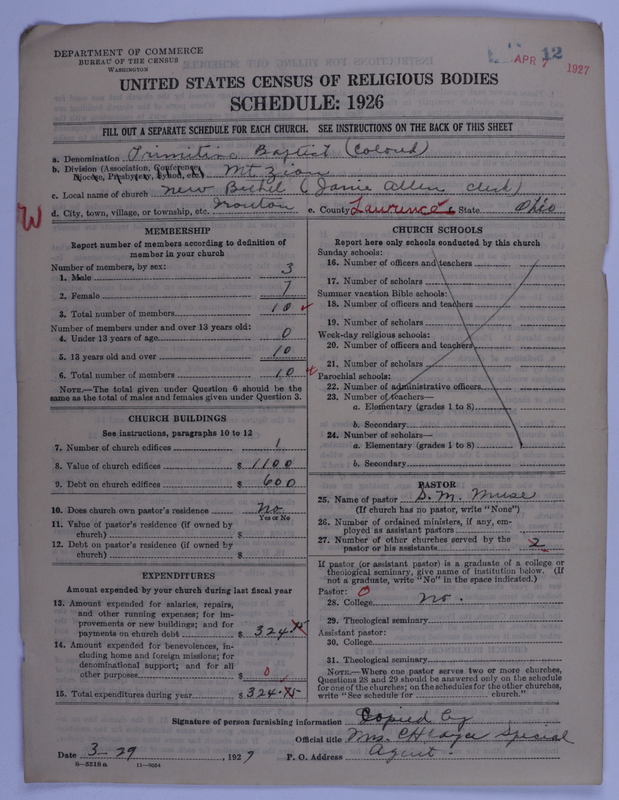 DEPARTMENT OF COMMERCE
BUREAU OF THE CENSUS
WASHINGTON
12
APR 7 1927
UNITED STATES CENSUS OF RELIGIOUS BODIES
SCHEDULE: 1926
FILL OUT A SEPARATE SCHEDULE FOR EACH CHURCH. SEE INSTRUCTIONS ON THE BACK OF THIS SHEET
a. Denomination Primitive Baptist (Colored)
b. Division (Association, Conference, Diocese, Presbytery, Synod, etc.) Mt Zion
c. Local name of church New Bethel (Janie Allen clerk)
d. City, town, village, or township, etc. Ironton e. County Lawrence State Ohio
W
MEMBERSHIP
Report number of members according to definition of
member in your church
Number of members, by sex:
1. Male 3
2. Female 7
3. Total number of members 10
Number of members under and over 13 years old:
4. Under 13 years of age 0
5. 13 years old and over 10
6. Total number of members 10
NOTE.—The total given under Question 6 should be the
same as the total of males and females given under Question 3.
CHURCH BUILDINGS
See instructions, paragraphs 10 to 12
7. Number of church edifices 1
8. Value of church edifices $ 1100
9. Debt on church edifices $ 600
10. Does church own pastor's residence No
Yes or No
11. Value of pastor's residence (if owned by
church) $
12. Debt on pastor's residence (if owned by
church) $
EXPENDITURES
Amount expended by your church during last fiscal year
13. Amount expended for salaries, repairs,
and other running expenses; for im-
provements or new buildings; and for
payments on church debt $ 324.75
14. Amount expended for benevolences, in-
cluding home and foreign missions; for
denominational support; and for all
other purposes $ 0
15. Total expenditures during year $ 324.75
CHURCH SCHOOLS
Report here only schools conducted by this church
Sunday schools:
16. Number of officers and teachers
17. Number of scholars
Summer vacation Bible schools:
18. Number of officers and teachers
19. Number of scholars
Week-day religious schools:
20. Number of officers and teachers
21. Number of scholars
Parochial schools:
22. Number of administrative officers
23. Number of teachers—
a. Elementary (grades 1 to 8)
b. Secondary
24. Number of scholars—
a. Elementary (grades 1 to 8)
b. Secondary
PASTOR
25. Name of pastor S. M. Muse
(If church has no pastor, write "None")
26. Number of ordained ministers, if any, em-
ployed as assistant pastors
27. Number of other churches served by the
pastor or his assistants 2
If pastor (or assistant pastor) is a graduate of a college or
theological seminary, give name of institution below. (If
not a graduate, write "No" in the space indicated.)
Pastor: 0
28. College No.
29. Theological seminary
Assistant pastor:
30. College
31. Theological seminary
NOTE.—Where one pastor serves two or more churches,
Questions 28 and 29 should be answered only on the schedule
for one of the churches; on the schedules for the other churches,
write "See schedule for church."
Signature of person furnishing information Copied by
Official title Mrs. Special
Date 3-29, 1927 P. O. Address Agent.
8-5518a 11-9054